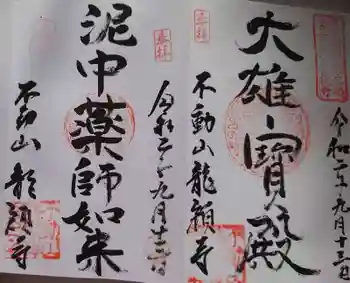 奉拝
令和二年九月十三日
大雄寶殿
不動山龍顔寺
奉拝
令和二年九月十三日
泥中薬師如来
不動山龍顔寺